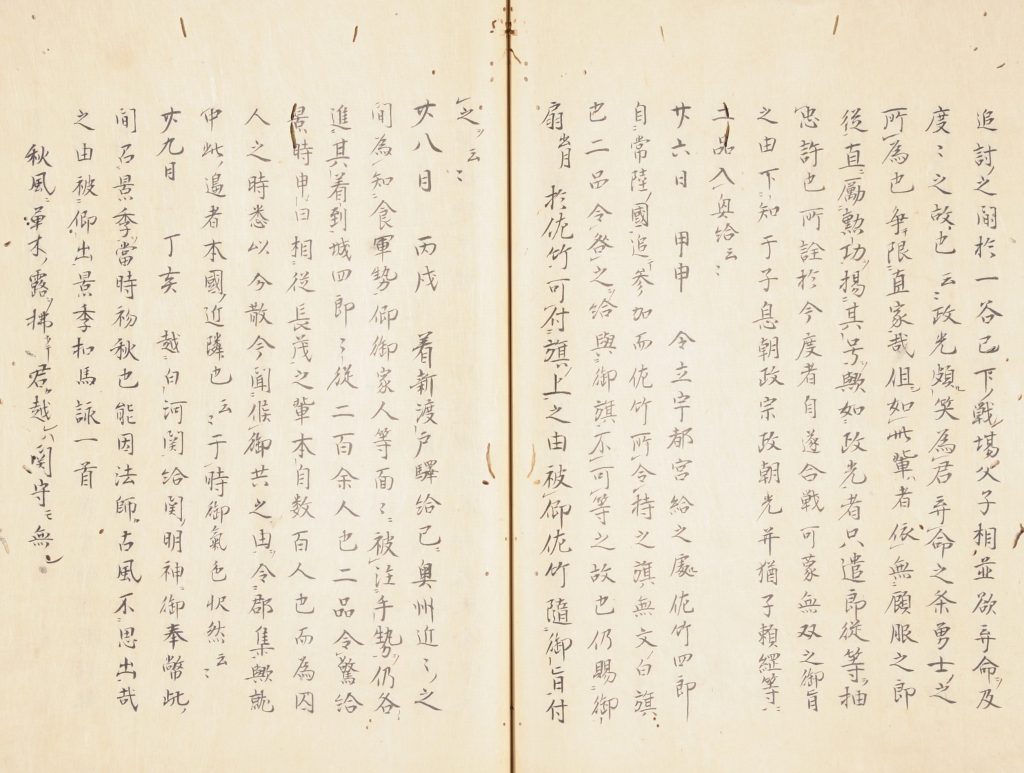 追討之間於一谷已下戦場父子相並欲弃命及
度〻之故也云〻政光頗笑為君弃命之条勇士之
所為也争限直家哉但如此輩者依無顧服之郎
従直励勲功揚其号歟如政光者只遣郎従等抽
忠許也所詮於今度者自遂合戦可蒙無双之御旨
之由下知于子息朝政宗政朝光并猶子頼綱等
土品入奥給云〻
廿六日 甲申 令立宇都宮給之處佐竹四郎
自常陸國追参加而佐竹所令持之旗無文白旗
也二品令咎之給與御旗不可等之故也仍賜御
扇出月於佐竹可付旗上之由被仰佐竹随御旨付
之云〻
廿八日 丙戌 着新渡戸驛給已奥州近〻之
間為知食軍勢仰御家人等面〻被注手勢仍各
進其着到城四郎〻従二百余人也二品令驚給
景時申曰相従長茂之輩本自数百人也而為囚
人之時悉以令散今聞候御共之由令郡集歟就
中此邉者本國近隣也云〻于時御氣色快然云〻
廿九日 丁亥 越白河関給関明神御奉幣此
間召景季當時初秋也能因法師古風不思出哉
之由被仰出景季扣馬詠一首
秋風ニ草木ノ露ヲ拂セテ君カ越レハ関守モ無シ